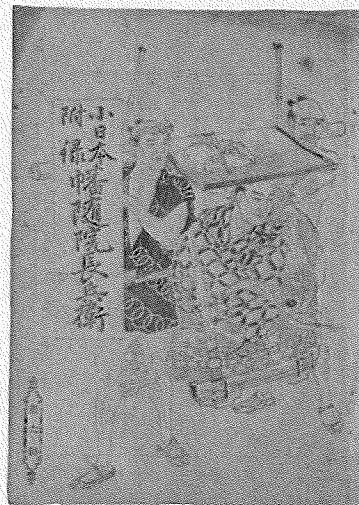 小日本
附録
幡隨院長兵衛